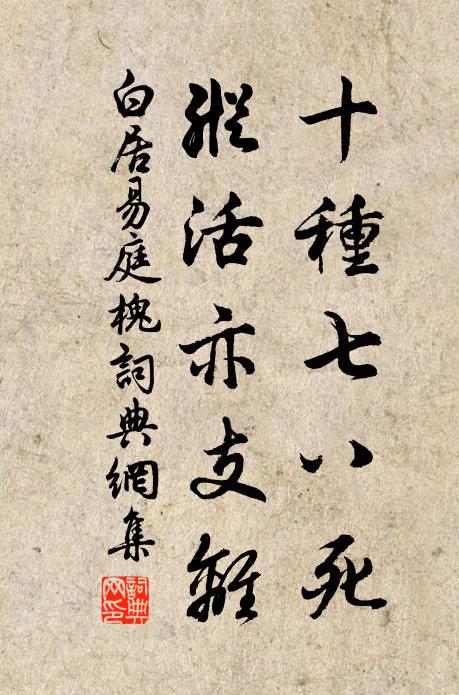 十種七八死
縱活亦支離
白居易庭槐詞典網集
詞典网印